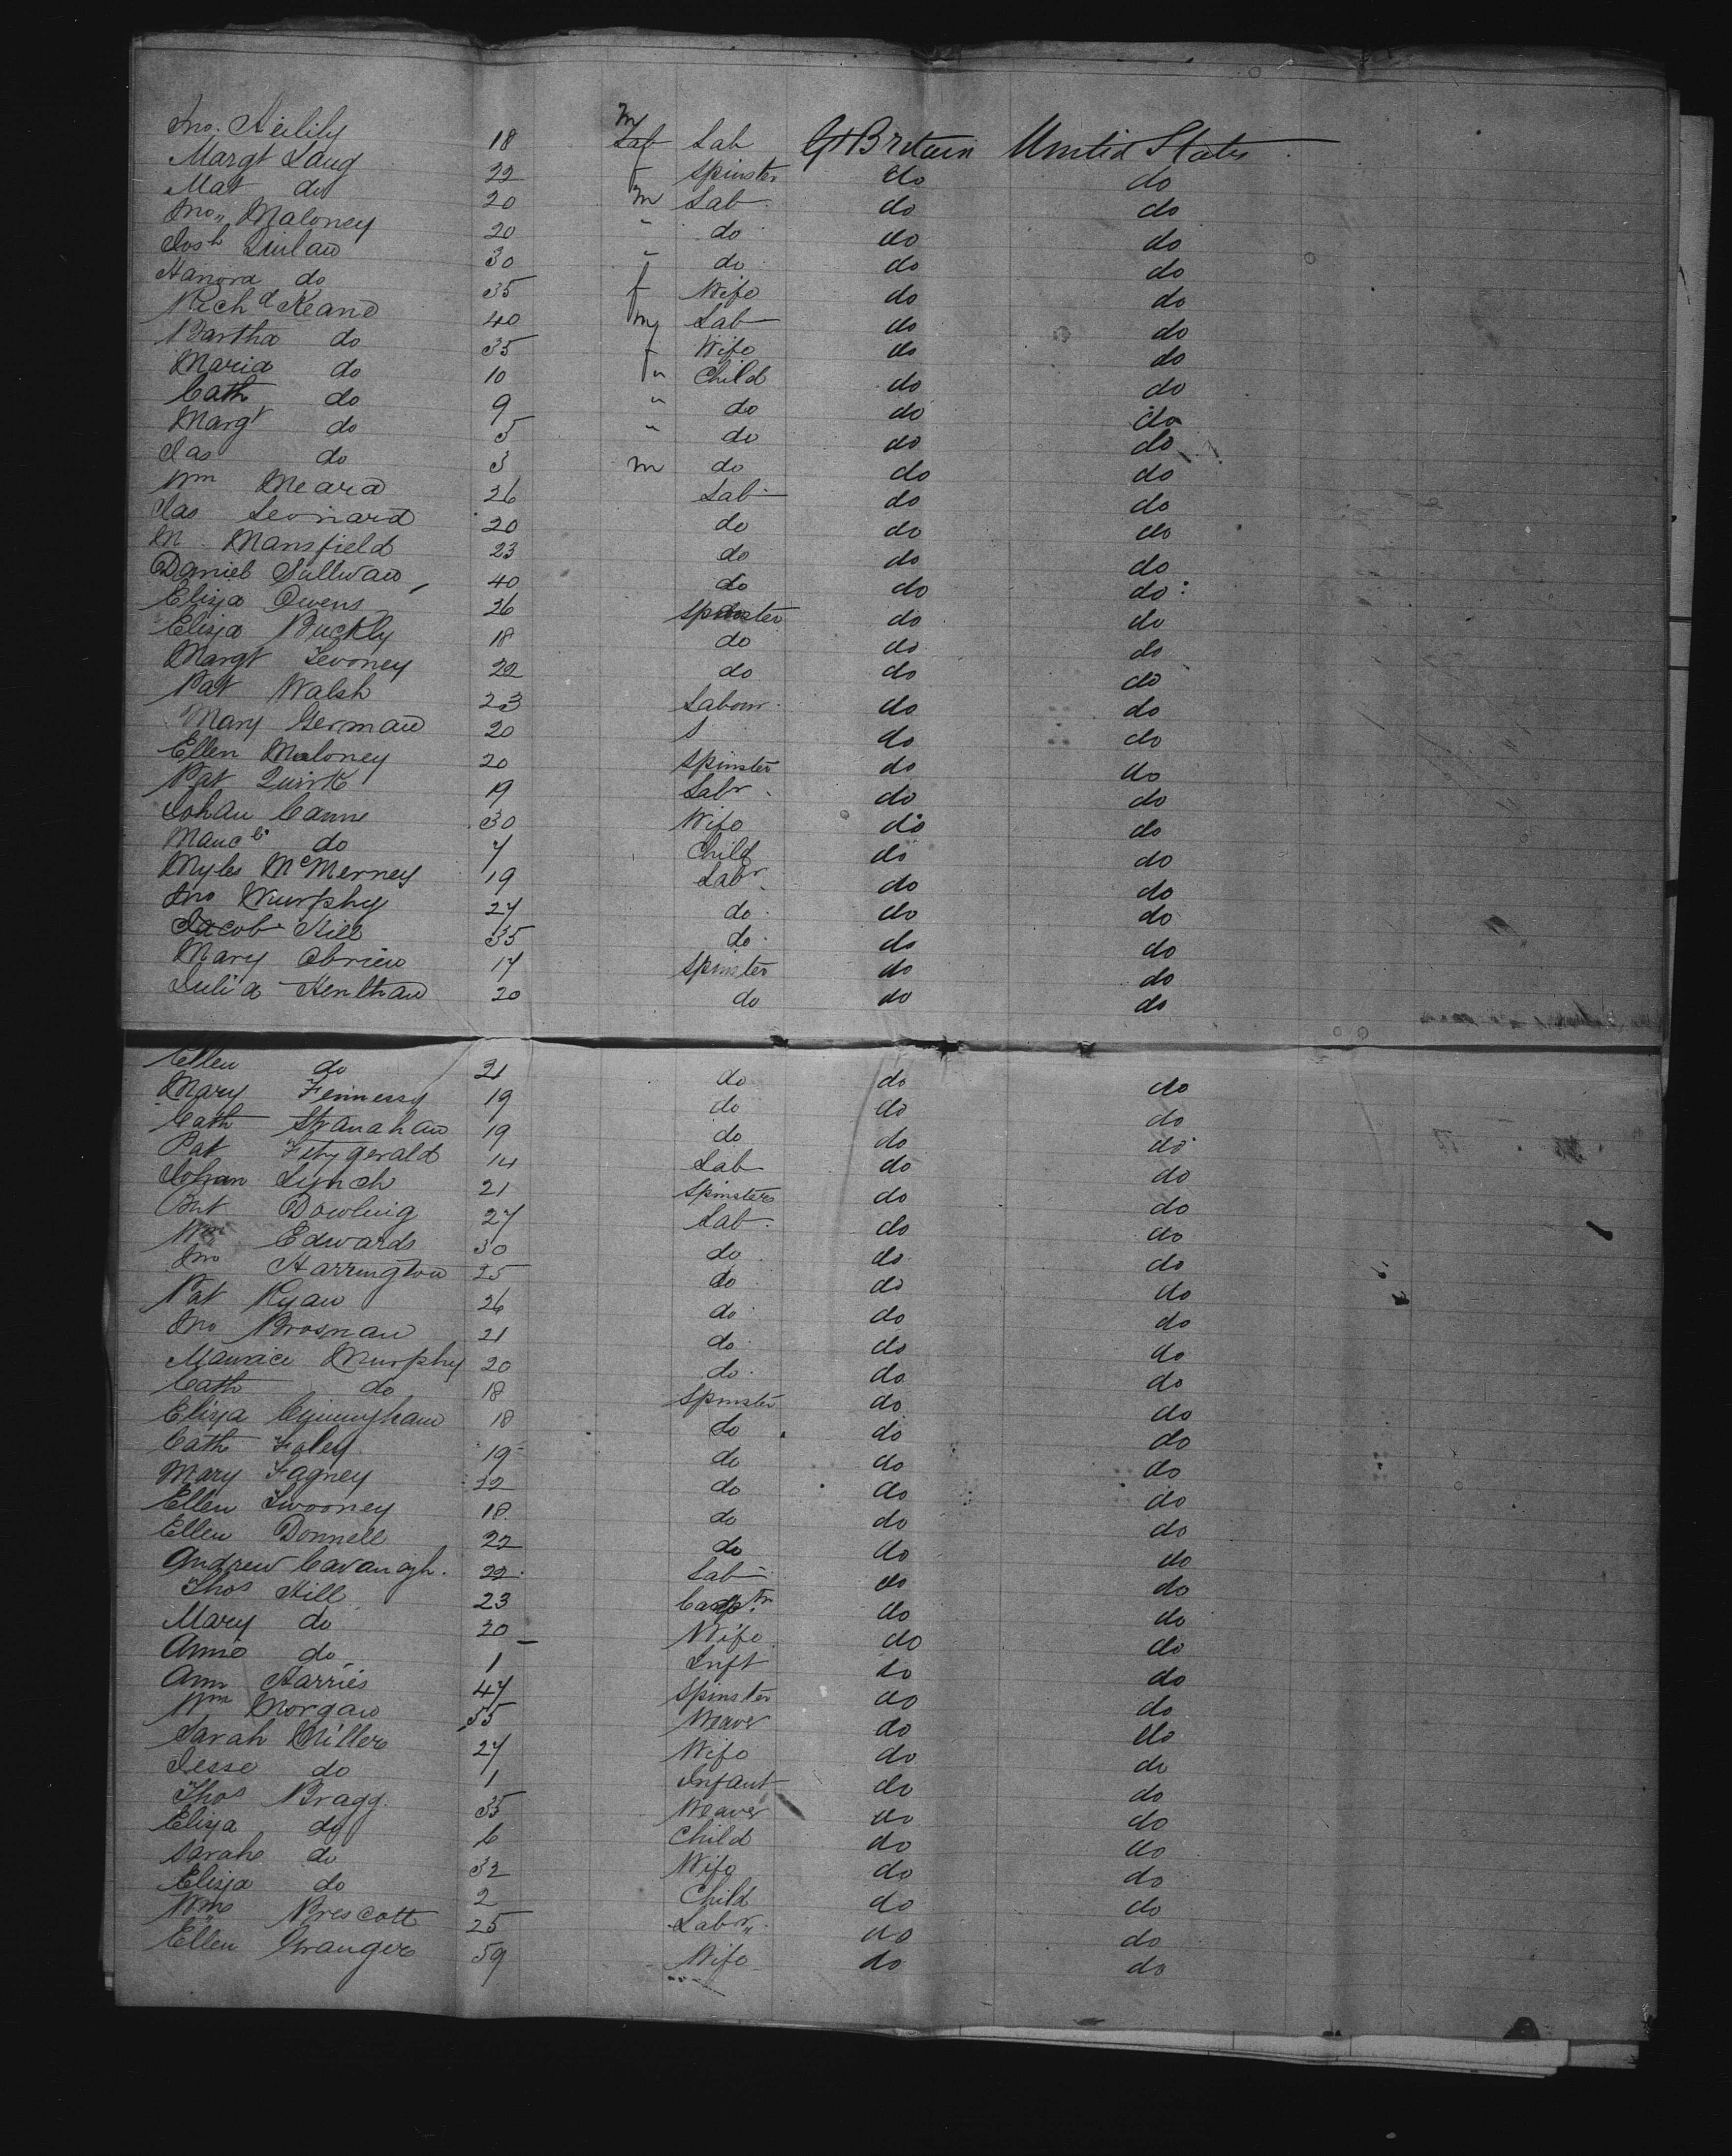 Jno. Heilily 18 m Lab Lab Gt Britain United States
Margt Laug 22 f Spinster do do
Mat do 20 m Lab do do
Jno,, Maloney 20 " do do do
Josh Quilan 30 " do do do
Hanora do 35 f Wife do do
Richd Keane 40 m Lab do do
Bartha do 35 f Wife do do
Maria do 10 f " Child do do
Cath do 9 " do do do
Margt do 5 " do do do
Jas do 3 m do do do
Wm Meara 26 Lab do do
Jas Leonard 20 do do do
M Mansfield 23 do do do
Daniel Sullivan 40 do do do
Eliza Owens 26 Spinster do do
Eliza Buckly 18 do do do
Margt Tevoney 22 do do do
Pat Walsh 23 Labour do do
Mary German 20 S do do
Ellen Maloney 20 Spinster do do
Pat Quirk 19 Labr do do
Johan Canne 30 Wife do do
do 7 Child do do
Myles McMerney 19 Labr do do
Jno Murphy 27 do do do
Jacob Hill 35 do do do
Mary Obrien 17 Spinster do do
Julia Henthan 20 do do do
Ellen do 21 do do do
Mary Fennessy 19 do do do
Cath Shanahan 19 do do do
Pat Fitzgerald 14 Lab do do
Johan Lynch 21 Spinster do do
Pat Dowling 27 Lab do do
Wm Edwards 30 do do do
Jno Harrington 25 do do do
Pat Ryan 26 do do do
Jno Brosnan 21 do do do
Maurice Murphy 20 do do do
Cath do 18 Spinster do do
Eliza Cunningham 18 do do do
Cath Foley 19 do do do
Mary Fagney 22 do do do
Ellen Twooney 18 do do do
Ellen Donnell 22 do do do
Andrew Cavanagh. 22 Lab do do
Thos Hill 23 Carptr do do
Mary do 20 Wife do do
Anne do 1 Inft do do
Ann Harries 47 Spinster do do
Wm Morgan 55 Weaver do do
Sarah Miller 27 Wife do do
Jesse do 1 Infant do do
Thos Bragg. 35 Weaver do do
Eliza do 6 Child do do
Sarah do 32 Wife do do
Eliza do 2 Child do do
Wm Prescott 25 Labr,, do do
Ellen Granger 59 Wife do do